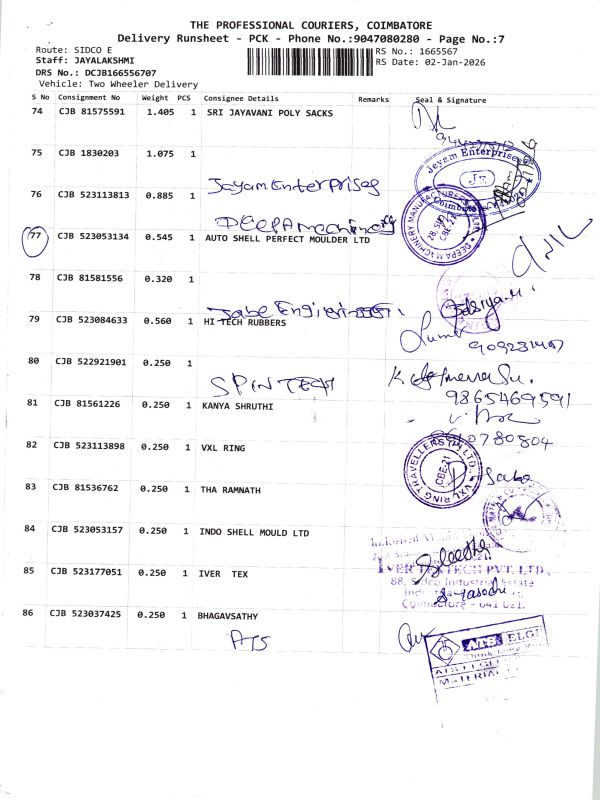 THE PROFESSIONAL COURIERS, COIMBATORE
Delivery Runsheet - PCK - Phone No.:9047080280 - Page No.:7
Route: SIDCO E
RS No.: 1665567
Staff: JAYALAKSHMI
RS Date: 02-Jan-2026
DRS No.: DCJB166556707
Vehicle: Two Wheeler Delivery
S No Consignment No Weight PCS Consignee Details Remarks Seal & Signature
74 CJB 81575591 1.405 1 SRI JAYAVANI POLY SACKS
75 CJB 1830203 1.075 1
Jayam Enterprises
Jeyam Enterprises
JE
Coimbatore
76 CJB 523113813 0.885 1
DEEPA machinery
DEEPA MACHINERY MANUFACTURERS
CBE-21
77 CJB 523053134 0.545 1 AUTO SHELL PERFECT MOULDER LTD
78 CJB 81581556 0.320 1
79 CJB 523084633 0.560 1 HI TECH RUBBERS
80 CJB 522921901 0.250 1
SPINTECH
9865469591
81 CJB 81561226 0.250 1 KANYA SHRUTHI
82 CJB 523113898 0.250 1 VXL RING
VXL RING TRAVELLERS (P) LTD.
CBE-21
83 CJB 81536762 0.250 1 THA RAMNATH
84 CJB 523053157 0.250 1 INDO SHELL MOULD LTD
85 CJB 523177051 0.250 1 IVER TEX
IVER TEXTECH PVT. LTD.,
88, Sidco Industrial Estate
Coimbatore - 641 021.
86 CJB 523037425 0.250 1 BHAGAVSATHY
ATS
ATS ELGI